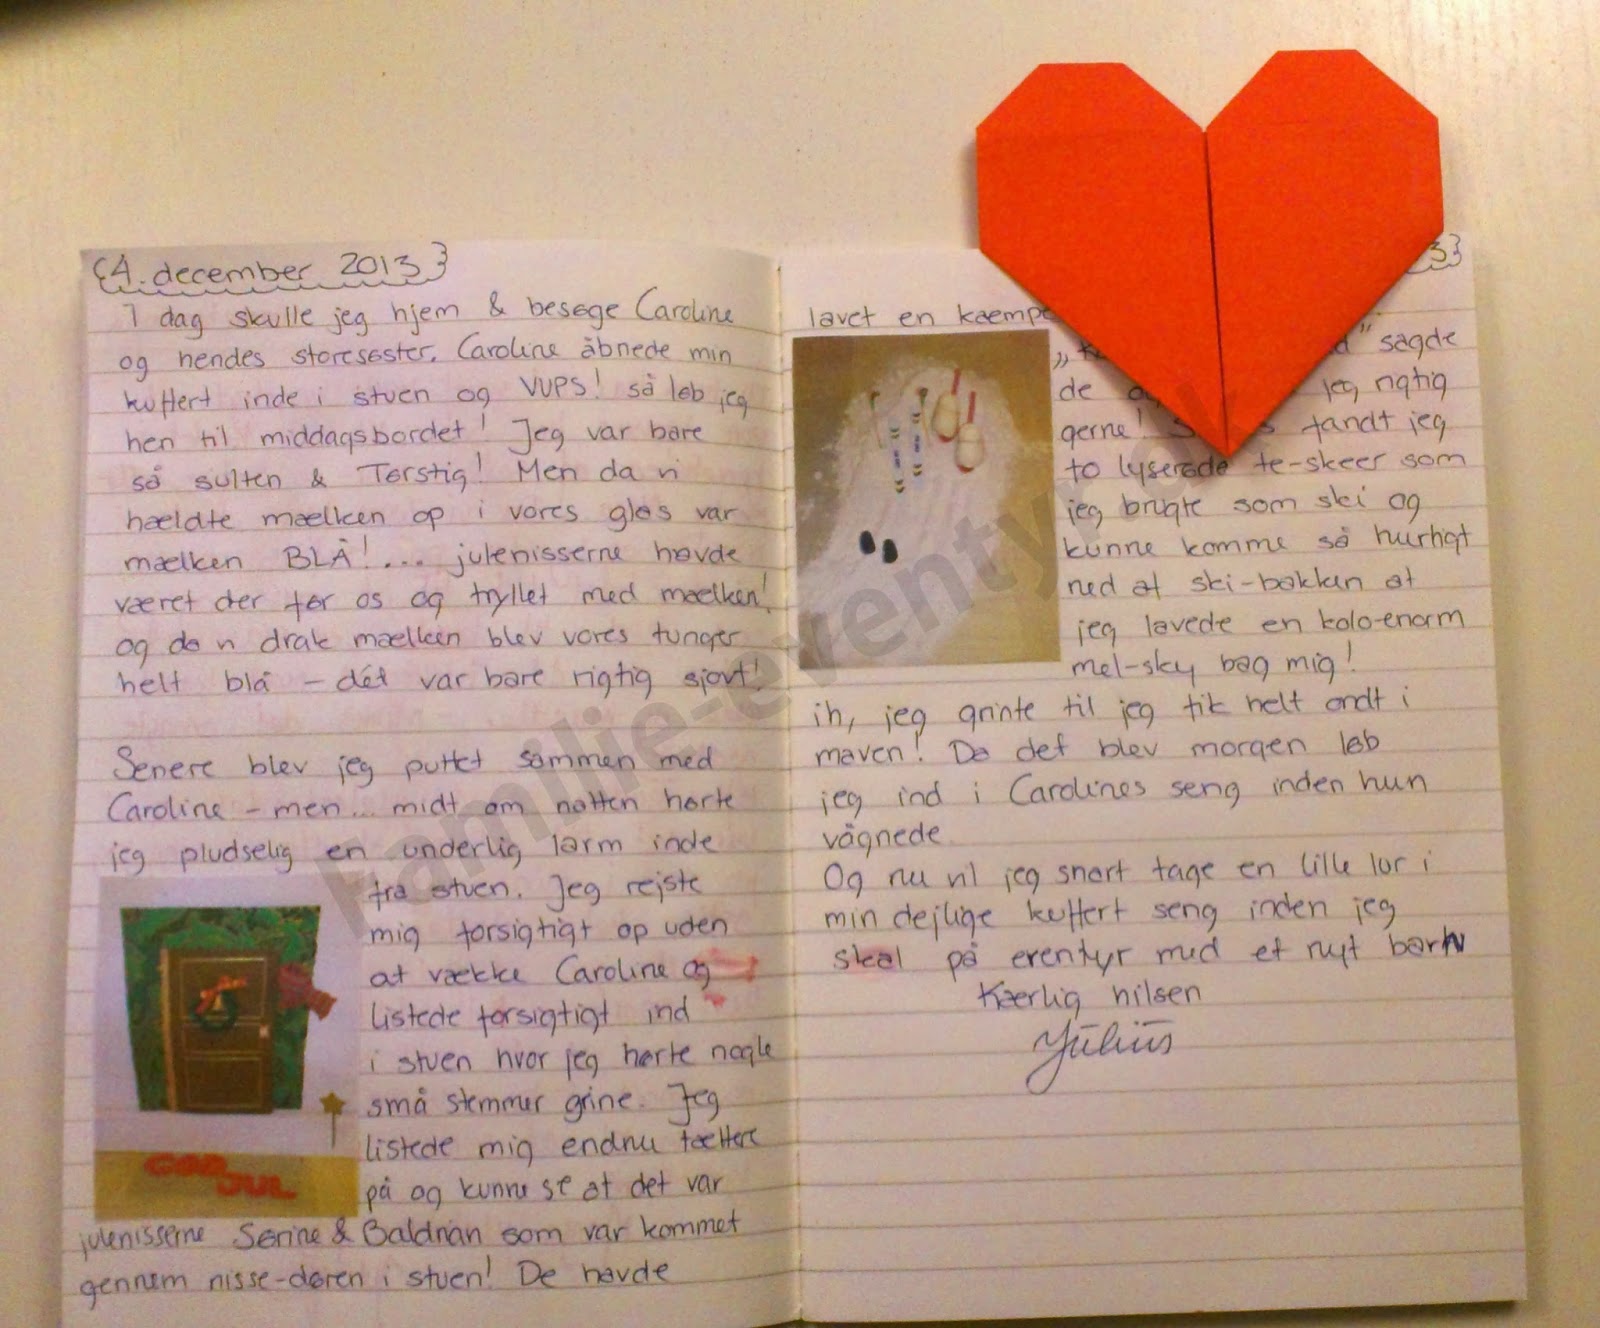 {4. december 2013}
I dag skulle jeg hjem & besøge Caroline
og hendes storesøster. Caroline åbnede min
kuffert inde i stuen og VUPS! så løb jeg
hen til middagsbordet! Jeg var bare
så sulten & Tørstig! Men da vi
hældte mælken op i vores glas var
mælken BLÅ!... julenisserne havde
været der før os og tryllet med mælken!
og da vi drak mælken blev vores tunger
helt blå - dét var bare rigtig sjovt!
Senere blev jeg puttet sammen med
Caroline - men... midt om natten hørte
jeg pludselig en underlig larm inde
fra stuen. Jeg rejste
mig forsigtigt op uden
at vække Caroline og
listede forsigtigt ind
i stuen hvor jeg hørte nogle
små stemmer grine. Jeg
listede mig endnu tættere
på og kunne se at det var
julenisserne Sørine & Baldrian som var kommet
gennem nisse-døren i stuen! De havde
GOD
JUL
3}
lavet en kæmpe
" sagde
de jeg rigtig
gerne! fandt jeg
to lyserøde te-skeer som
jeg brugte som ski og
kunne komme så hurtigt
ned af ski-bakken at
jeg lavede en kolo-enorm
mel-sky bag mig!
ih, jeg grinte til jeg fik helt ondt i
maven! Da det blev morgen løb
jeg ind i Carolines seng inden hun
vågnede.
Og nu vil jeg snart tage en lille lur i
min dejlige kuffert seng inden jeg
skal på eventyr med et nyt barn
Kærlig hilsen
Julius
Familie-eventyr